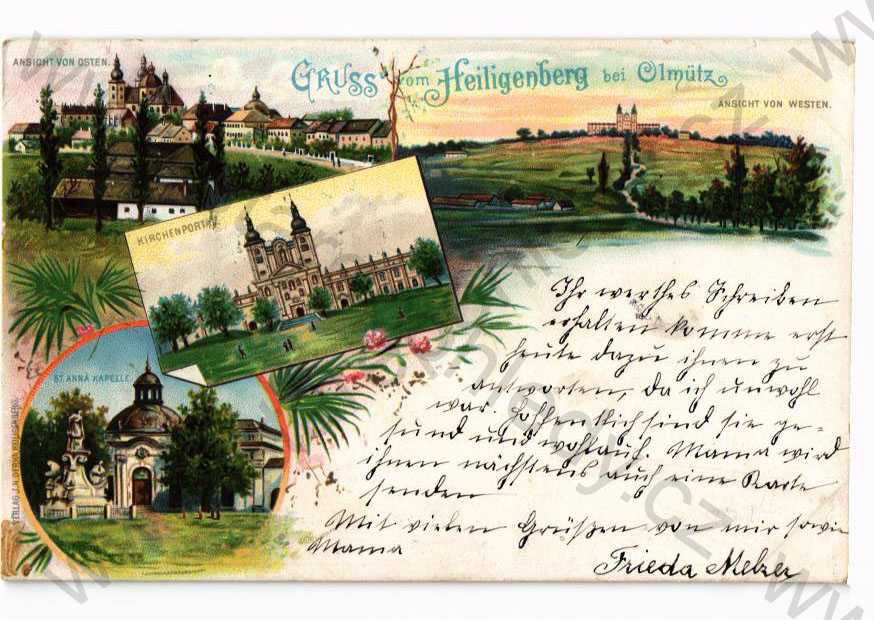 ANSICHT VON OSTEN.
GRUSS vom Heiligenberg bei Olmütz
ANSICHT VON WESTEN.
KIRCHENPORTAL
ST. ANNA KAPELLE
Ihr werthes Schreiben
erhalten komme erst
heute dazu ihnen zu
antworten, da ich unwohl
war. Hoffentlich sind sie ge-
sund und wohlauf. Mama wird
ihnen nächstens auch eine Karte
senden
Mit vielen Grüßen von mir sowie
Mama
Frieda Melzer